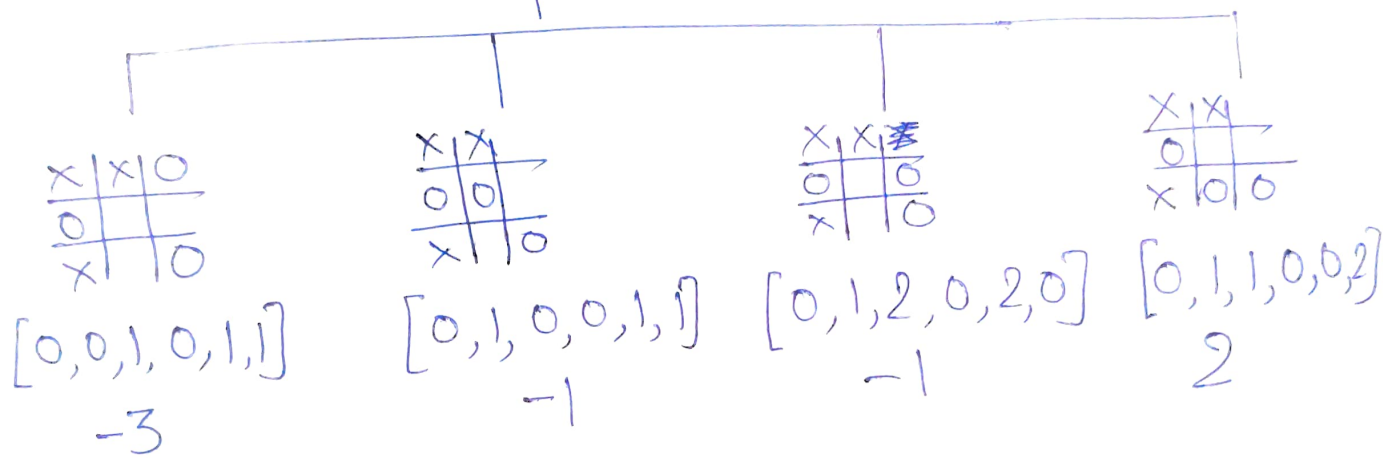 X X O
O
X O
[0,0,1,0,1,1]
-3
X X
O O
X O
[0,1,0,0,1,1]
-1
X X
O O
X O
[0,1,2,0,2,0]
-1
X X
O
X O O
[0,1,1,0,0,2]
2